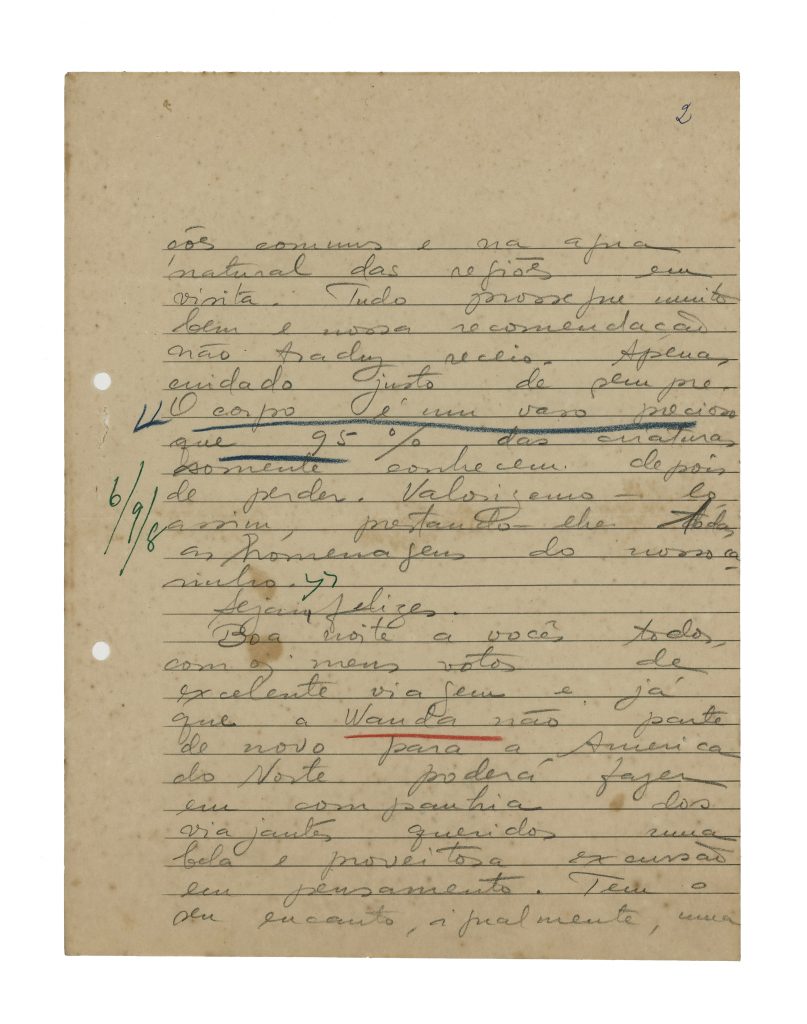 2
ções comuns e na agua
natural das regiões em
visita. Tudo prossegue muito
bem e nossa recomendação
não traduz receio. Apenas
cuidado justo de sempre.
"O corpo é um vaso precioso
que 95 % das criaturas
somente conhecem depois
de perder. Valorizemo-lo
assim, prestando-lhe todas
as homenagens do nosso ca
rinho."
Sejam felizes.
Boa noite a vocês todos,
com os meus votos de
excelente viagem e já
que a Wanda não parte
de novo para a America
do Norte poderá fazer
em companhia dos
viajantes queridos uma
bela e proveitosa excursão
em pensamento. Tem o
seu encanto, igualmente, uma
6/9/8